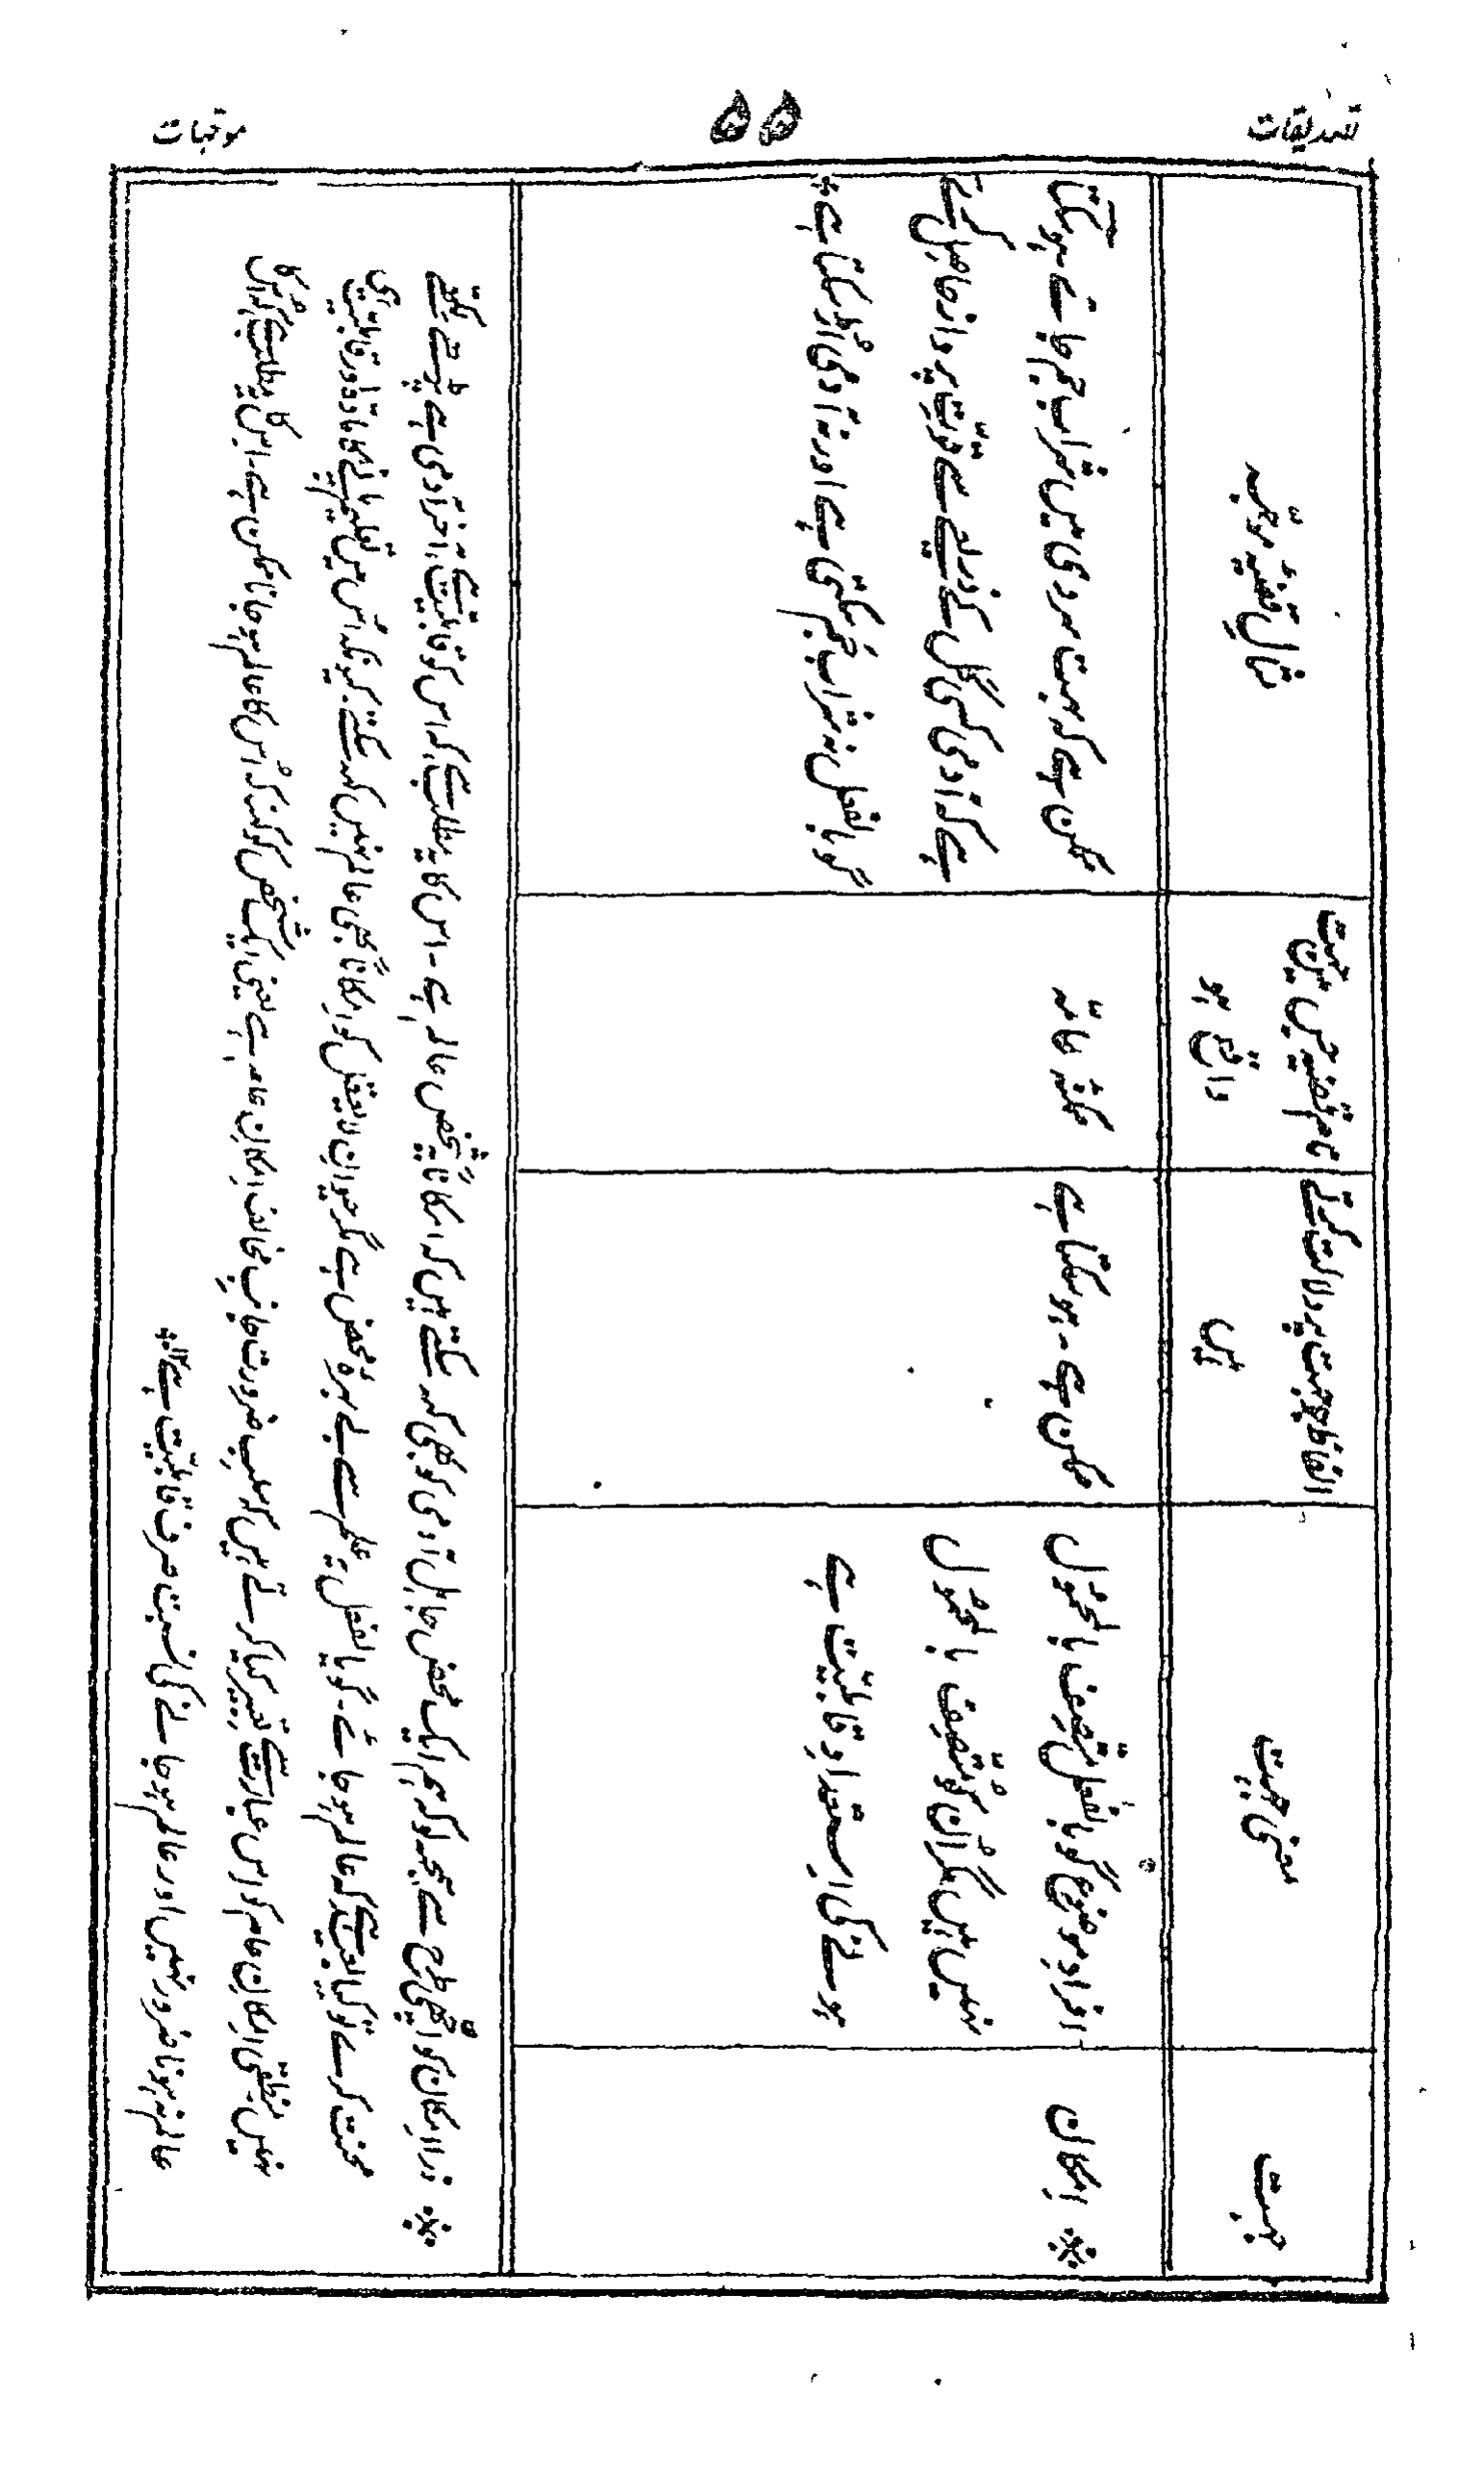 تصدیقات
۵۵
موجہات
جہت
معنی جہت
الفاظ جو جہت پر دلالت کرتے
ہیں
نام قضیہ جس میں جہت
واقع ہو
مثالِ قضیہ موجّہہ
※ امکان
افرادِ موضوع گو بالفعل متصف بالمحمول
نہیں ہیں مگر اُن کو متصف بالمحمول
ہونے کی استعداد و قابلیت ہے
ممکن ہے۔ ہو سکتا ہے
ممکنہ عامّہ
ممکن ہے کہ بہت سردی میں شراب جم جائے ہو سکتا
ہے کہ آدمی کسی کل کے ذریعے سے قوّتِ پرواز حاصل کرے
گو بالفعل نہ شراب جم سکتی ہے اور نہ آدمی اُڑ سکتا ہے
※ ذرا امکان کو اچھی طرح سے سمجھ لو کہ ہم ایک محض جاہل آدمی کو بھی کہہ سکتے ہیں کہ امکاناً یہ شخص عالم ہے۔ اس کا یہ مطلب ہے کہ اس کو قابلیت ہے آخر آدمی ہے پڑھے لکھے
محنت کرے تو کیا تعجب ہے کہ عالم ہو جائے۔ گو بالفعل یہ علم سے بے بہرۂ محض ہے مگر حیوان لا یعقل کو امکاناً بھی عالم نہیں کہہ سکتے۔ کیونکہ اُس میں تعلیم پانے کا مادّہ اور قابلیت ہی
نہیں۔ منطقی امکانِ عام کو اس عبارت سے تعبیر کیا کرتے ہیں کہ سلبِ ضرورت جانبِ مخالف امکانِ عام ہے یعنی ایک شخص کو کہہ کہ اُس کا عالم ہو جانا ممکن ہے۔ اس کا یہ مطلب ہے کہ اُس کا
عالم نہ ہونا ضرور نہیں اور عالم ہو جانے کی نسبت صرف قابلیت ہے